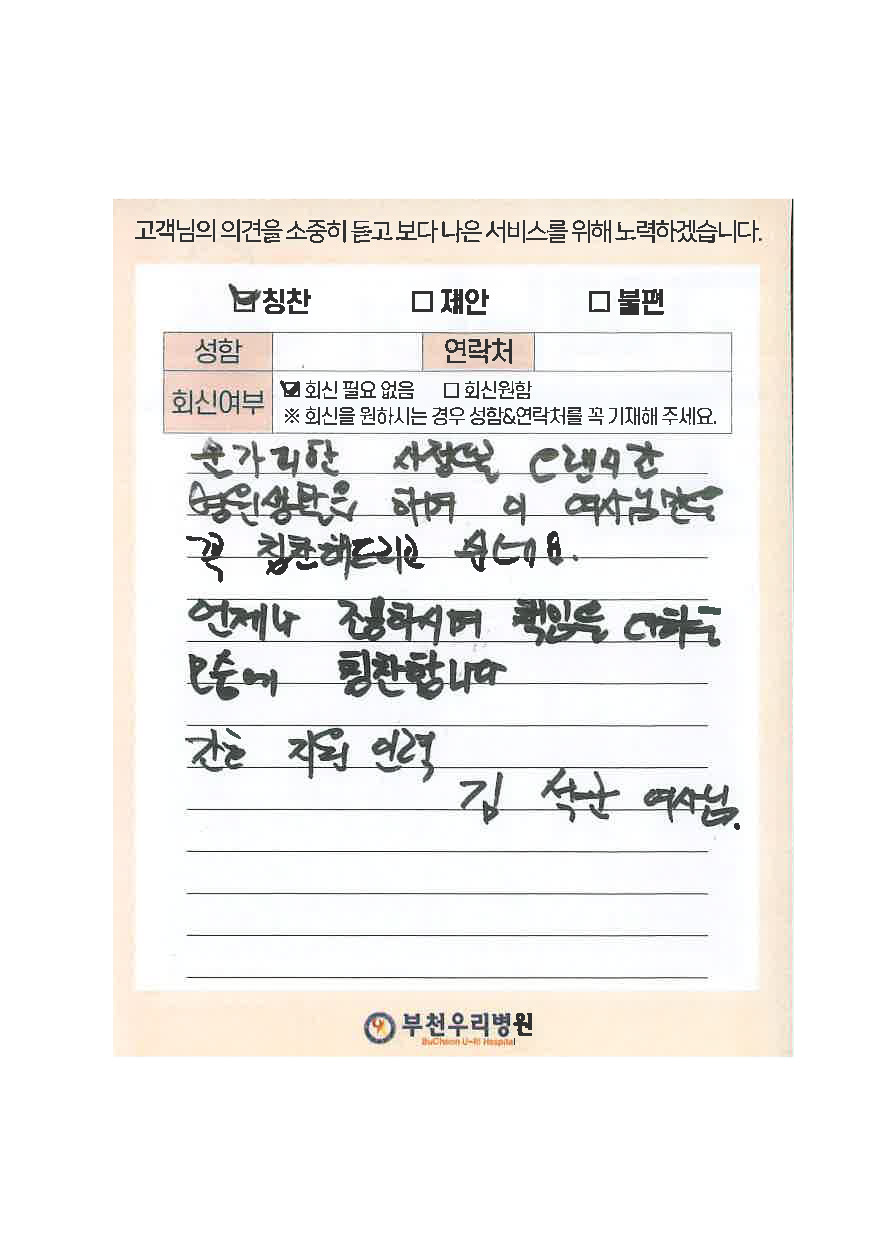 고객님의 의견을 소중히 듣고 보다 나은 서비스를 위해 노력하겠습니다.
칭찬 제안 불편
성함 연락처
회신여부 회신 필요 없음 회신원함
※ 회신을 원하시는 경우 성함&연락처를 꼭 기재해 주세요.
불가피한 사정으로 오랜시간
병원생활을 하며 이 여사님만은
꼭 칭찬해드리고 싶네요.
언제나 조용하시며 책임을 다하는
모습에 칭찬합니다
간호 지원 인력
김 석순 여사님.
부천우리병원
BuCheon U-RI Hospital